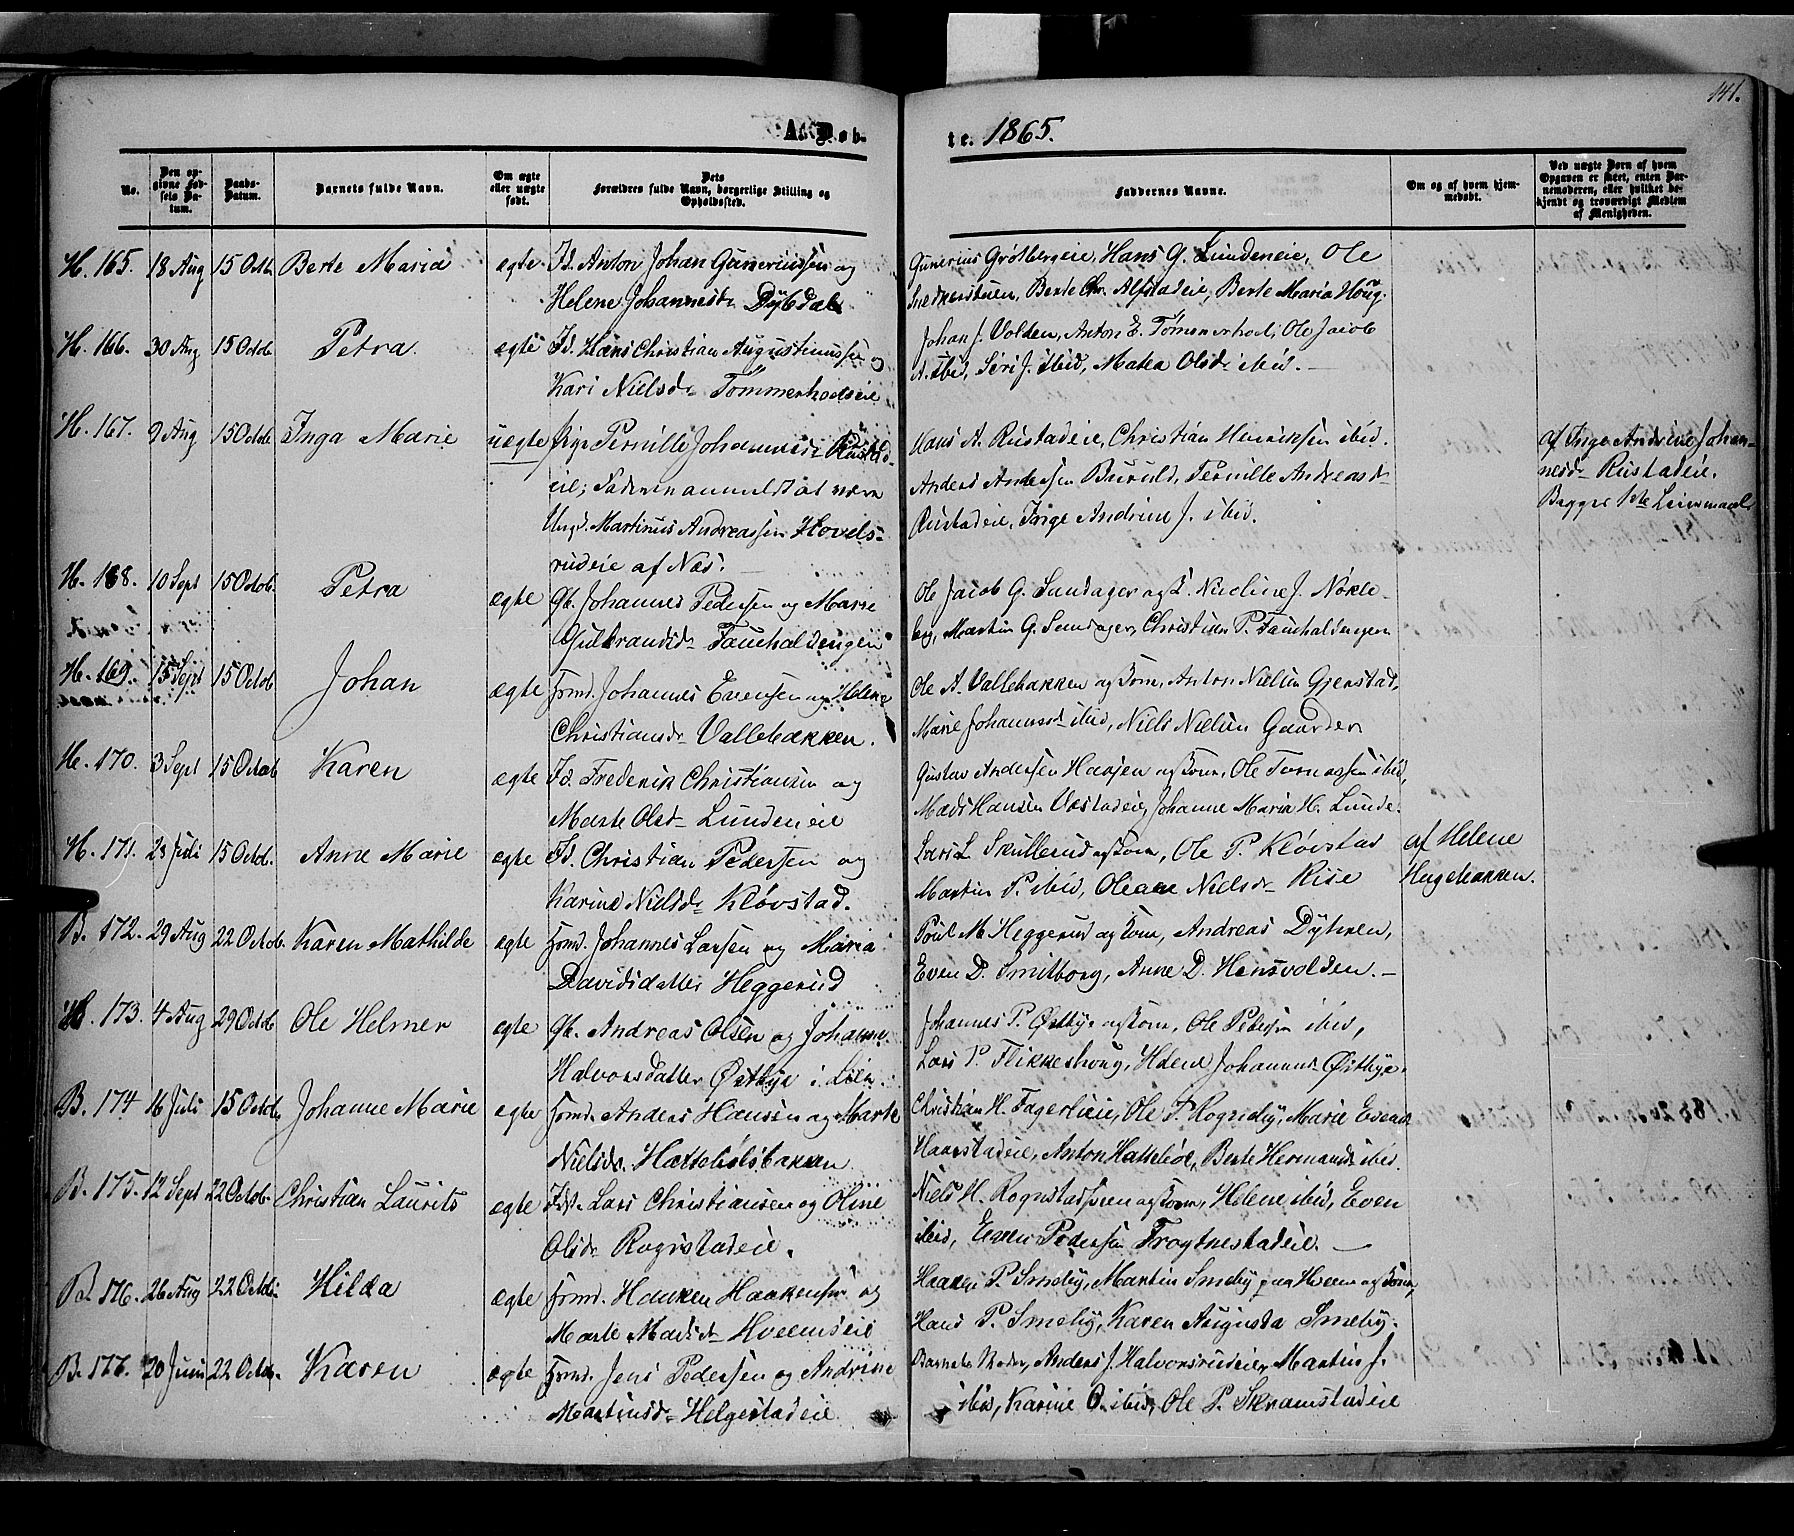 141.
A. Døb-
te. 1865.
No.
Den op-
givne Fød-
sels Da-
tum.
Daabs-
Datum.
Barnets fulde Navn.
Om ægte
eller uægte
født.
Dets
Forældres fulde Navn, borgerlige Stilling og
Opholdssted.
Faddernes Navne.
Om og af hvem hjem-
medøbt.
Ved uægte Børn af hvem
Opgaven er skeet, enten Bar-
nemoderen, eller hvilket be-
kjendt og troværdigt Medlem
af Menigheden.
H. 165. 18 Aug 15 Octb. Berte Maria ægte Id. Anton Johan Guneriussen og
Helene Johannesdr Dybdal
Gunerius Grøtbergeie, Hans G. Lundeneie, Ole
Snedkerstuen, Berte Chr. Alfstadeie, Berte Maria Houg.
H. 166. 30 Aug 15 Octob. Petra. ægte Id. Hans Christian Augustinussen og
Kari Nielsdr Tømmerhodseie
Johan J. Volden, Anton E. Tømmerhol, Ole Jacob
A. ibid, Siri J. ibid, Mathea Olsdr ibid.
H. 167. 9 Aug 15 Octob. Inga Marie uægte Pige Pernille Johannesdr Rustad-
eie; Faderen anmeldt at være
Ungk. Martinus Andreassen Hovels-
rudeie af Næs.
Hans A. Rustadeie, Christian Henriksen ibid.
Anders Andersen Buruld, Pernille Andreasdr
Rustadeie, Inge Andrine J. ibid.
af Inge Andrine Johan-
nesdr Rustadeie.
Begges 1ste Leiermaal
H. 168. 10 Sept 15 Octob. Petra ægte Gb. Johannes Pedersen og Marie
Gulbrandsdr Fauchaldengen
Ole Jacob G. Sundager og K. Nicoline J. Nøkle-
by, Martin G. Sundager, Christian P. Fauchaldengen
H. 169. 15 Sept 15 Octob Johan ægte Frmd. Johannes Evensen og Helene
Christiansdr Vallebakken.
Ole A. Vallebakken og Kone, Anton Nielsen Gjerstad,
Marie Johannesdr ibid, Niels Nielsen Gaarder
H. 170. 3 Sept 15 Octob Karen ægte Id. Frederik Christiansen og
Marte Olsdr Lundeneie
Gustav Andersen Haajen og Kone, Ole Tomassen ibid,
Mads Hansen Væstadeie, Johanne Maria H. Lunde.
H. 171. 23 Juli 15 Octob. Anne Marie ægte Id. Christian Pedersen og
Karine Nielsdr Kløvstad.
Lars L Skullerud og Kone, Ole P. Kløvstad
Martin P. ibid, Oleane Nielsdr Rise
af Helene
Hagebakken.
B. 172. 29 Aug 22 Octob. Karen Mathilde ægte Frmd. Johannes Larsen og Maria
Davidsdatter Heggerud
Poul M. Heggerud og Kone, Andreas Dythren,
Even D. Smitborg, Anne D. Hensvolden.
H. 173. 4 Aug 29 Octob Ole Helmer ægte Gb. Andreas Olsen og Johanne
Halvorsdatter Østbye i Lien.
Johannes P. Østbye og Kone, Ole Pedersen ibid,
Lars P. Flikkeshoug, Helene Johannesdr Østbye.
B. 174 16 Juli 15 Octob Johanne Marie ægte Frmd. Anders Hansen og Marte
Nielsdr. Hattelølsbakken.
Christian H. Fagerlieie, Ole P. Rognsby, Marie Evensdr
Haarstadeie, Anton Hatteløl, Berte Hermandsdr ibid.
B. 175. 12 Sept 22 Octob. Christian Laurits ægte Id. Lars Christiansen og Oline
Olsdr Rognstadeie.
Niels H. Rognstad og Kone, Helene ibid, Even
ibid, Even Pedersen Frogtnestadeie.
B. 176. 26 Aug 22 Octob. Hilda ægte Frmd. Haaken Haakensen og
Marte Madsdr Hveemseie
Haaken P. Smeby, Martin Smeby paa Hveem og Kone,
Hans P. Smeby, Karen Augusta Smeby.
B. 177. 20 Juni 22 Octob. Karen ægte Frmd. Jens Pedersen og Andrine
Martinsdr Helgestadeie
Barnets Moder, Anders J. Halvorsrudeie, Martin J.
ibid, Karine O. ibid, Ole P. Skramstadeie